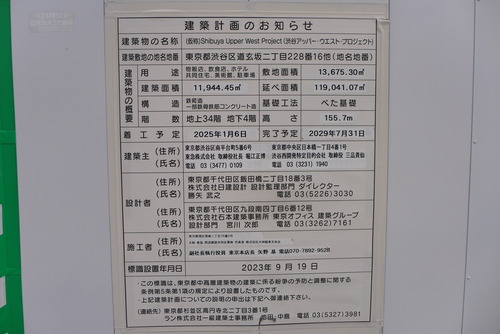 建築計画のお知らせ
建築物の名称 (仮称)Shibuya Upper West Project (渋谷アッパー・ウエスト・プロジェクト)
建築敷地の地名地番 東京都渋谷区道玄坂二丁目228番16他(地名地番)
建築物の概要
用途 物販店、飲食店、ホテル 共同住宅、美術館、駐車場 敷地面積 13,675.30㎡
建築面積 11,944.45㎡ 延べ面積 119,041.07㎡
構造 鉄骨造 一部鉄骨鉄筋コンクリート造 基礎工法 べた基礎
階数 地上34階 地下4階 高さ 155.7m
着工予定 2025年1月6日 完了予定 2029年7月31日
建築主
(住所) 東京都渋谷区南平台町5番6号 東京都中央区日本橋一丁目4番1号
(氏名) 東急株式会社 取締役社長 堀江正博 渋谷西開発特定目的会社 取締役 三品貴仙
電話 03 (3477) 0109 電話 03 (3231) 1940
設計者
(住所) 東京都千代田区飯田橋二丁目18番3号
(氏名) 株式会社日建設計 設計監理部門 ダイレクター
勝矢 武之 電話 03(5226)3030
(住所) 東京都千代田区九段南四丁目6番12号
(氏名) 株式会社石本建築事務所 東京オフィス 建築グループ
設計部門 宮川 次郎 電話 03(3262)7161
施工者
(住所)
(氏名) 副社長執行役員 東京本店長 電話070-7692-952B
標識設置年月日 2023年9月19日
・この標識は、東京都中高層建築物の建築に係る紛争の予防と調整に関する
条例第5条第1項の規定により設置したものです。
・上記建築計画についての説明の申出は下記へ御連絡下さい。
(連絡先) 東京都杉並区高円寺北二丁目3番1号
ラン株式会社一級建築士事務所 電話03(5327)3981